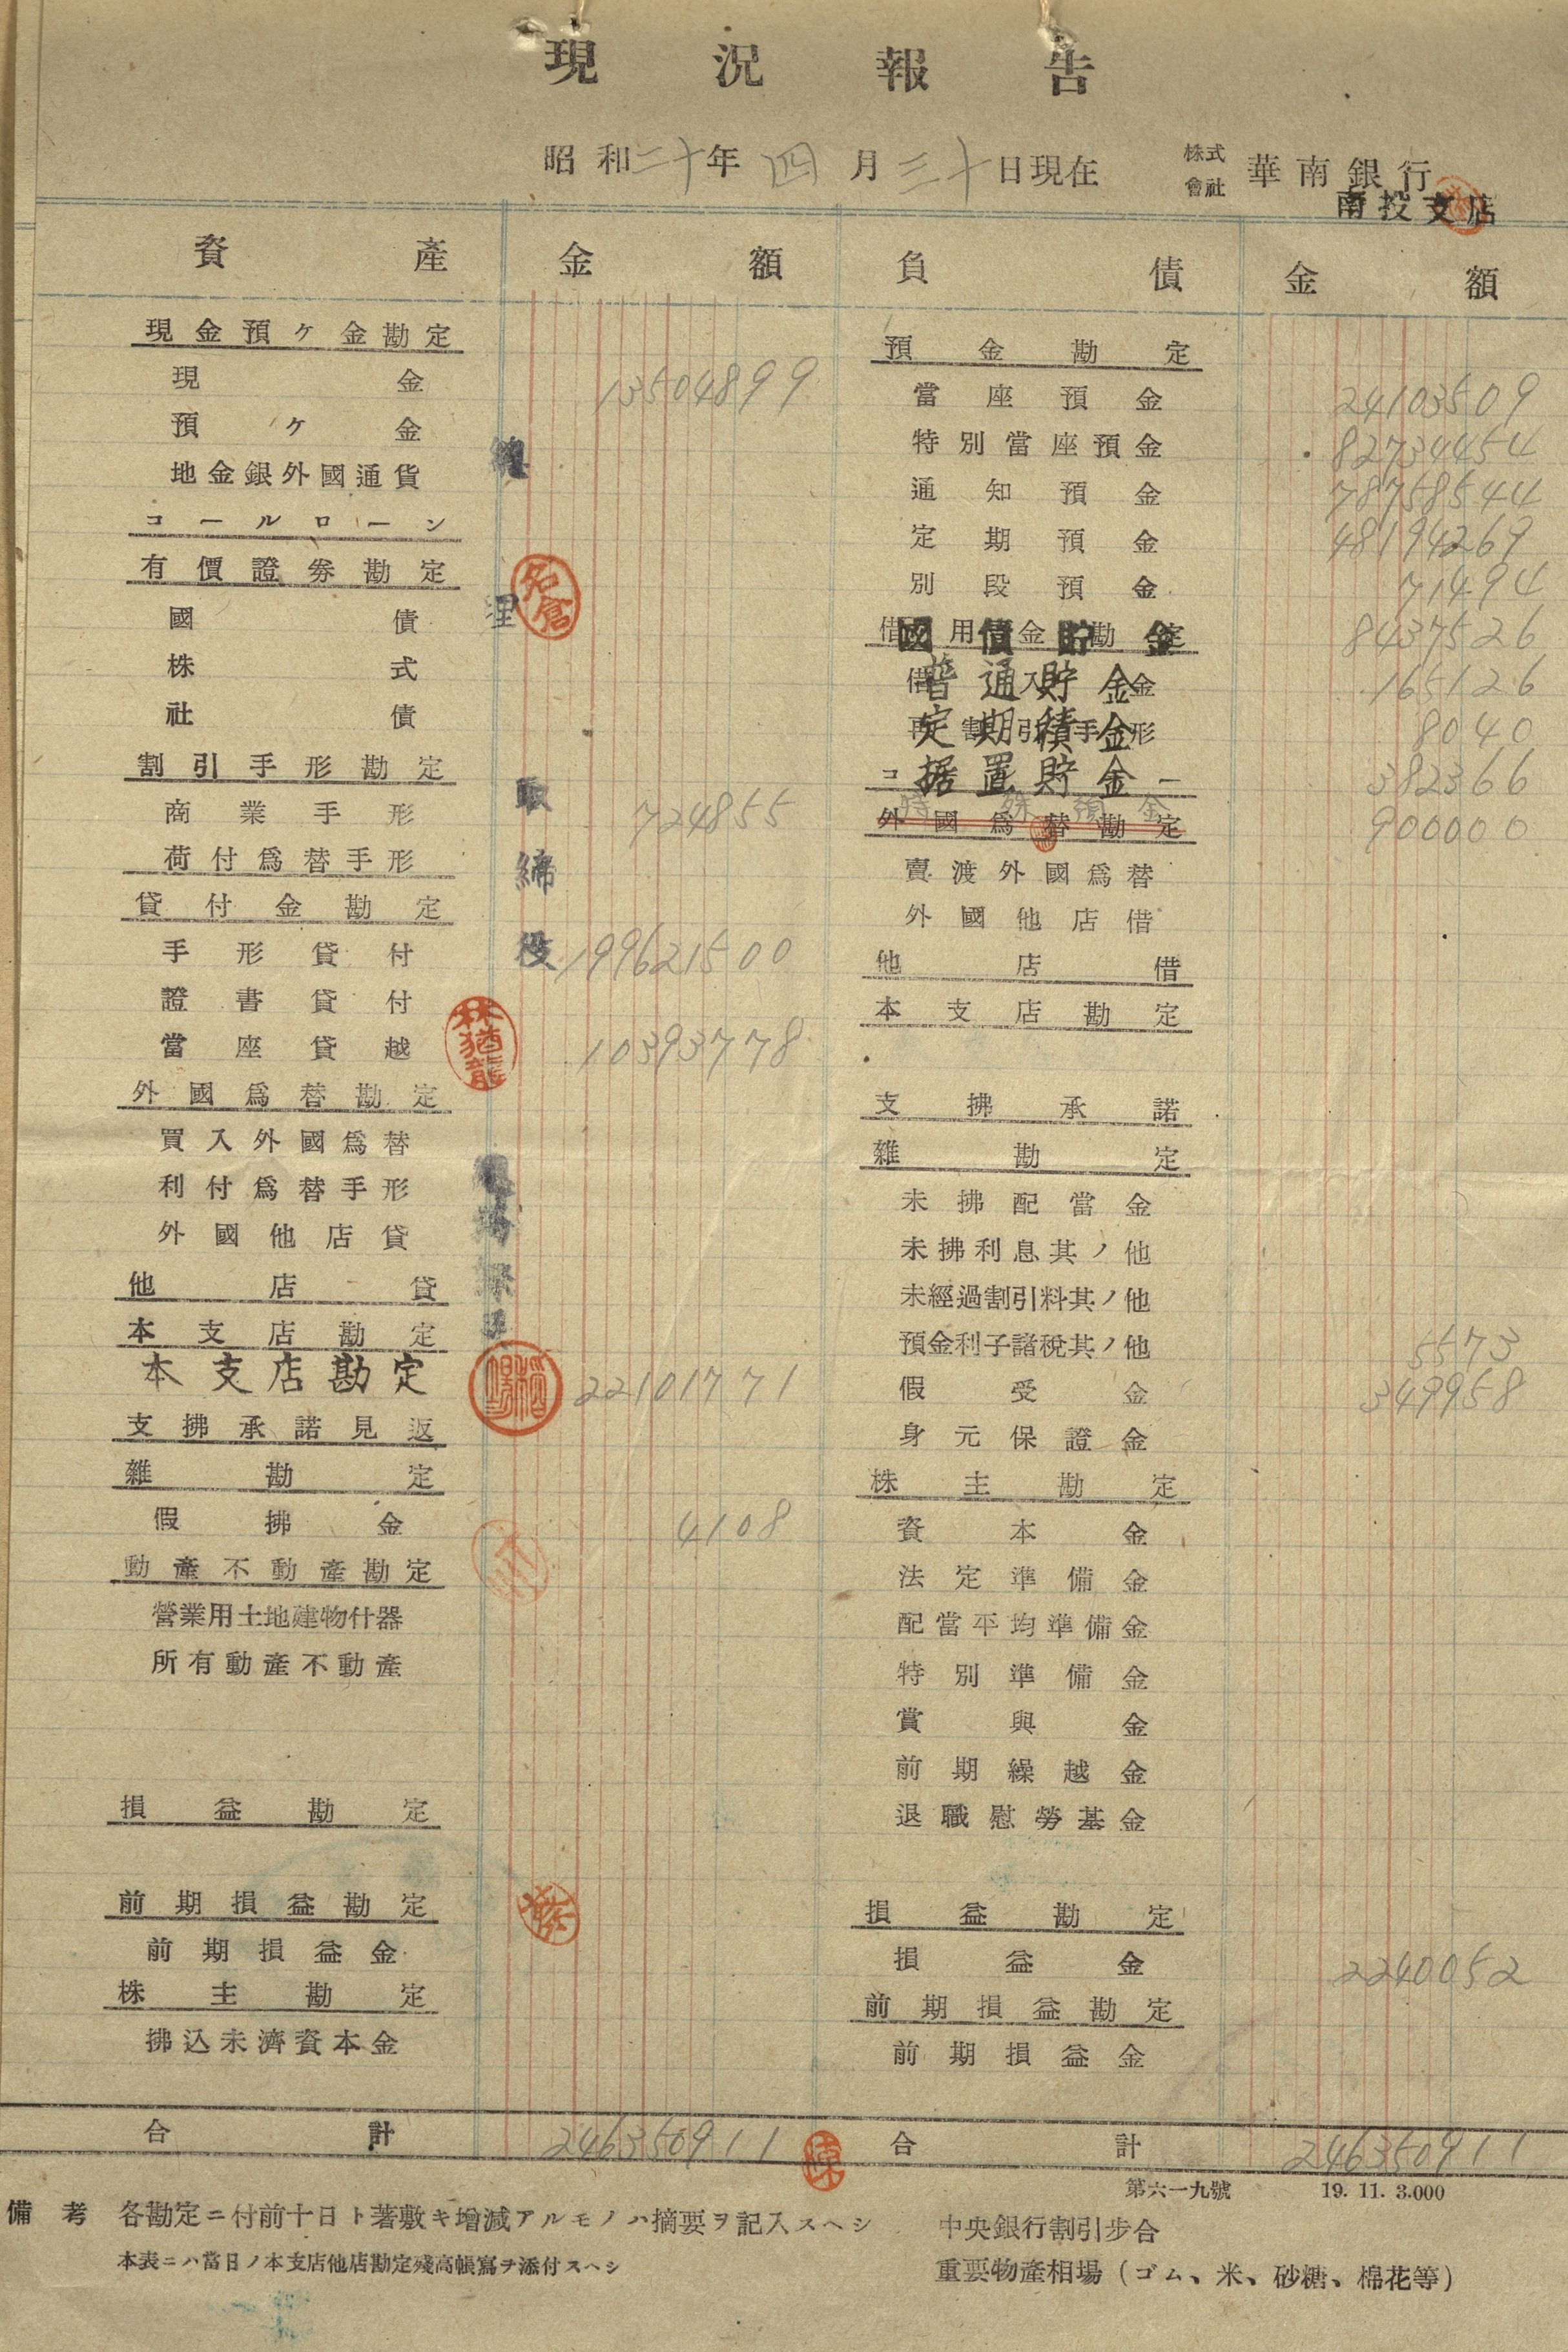 現況報告
昭和二十年四月三十日現在 株式會社 華南銀行
南投支店
資產 金額
現金預ケ金勘定
現金 13504899
預ケ金
地金銀外國通貨
コールローン
有價證券勘定
國債
株式
社債
割引手形勘定
商業手形 724855
荷付爲替手形
貸付金勘定
手形貸付 199621500
證書貸付
當座貸越 10393778
外國爲替勘定
買入外國爲替
利付爲替手形
外國他店貸
他店貸
本支店勘定
本支店勘定 22101771
支拂承諾見返
雜勘定
假拂金 4108
動產不動產勘定
營業用土地建物什器
所有動產不動產
損益勘定
前期損益勘定
前期損益金
株主勘定
拂込未濟資本金
合計 246350911
取締役
名倉
林猶龍
稻場
陳
負債 金額
預金勘定
當座預金 24103509
特別當座預金 82734454
通知預金 78758544
定期預金 48194269
別段預金 71494
借用金勘定
國債貯金 8437526
借入金
普通貯金 165126
再割引手形
定期積金 8040
据置貯金 382366
特殊預金 900000
外國爲替勘定
賣渡外國爲替
外國他店借
他店借
本支店勘定
支拂承諾
雜勘定
未拂配當金
未拂利息其ノ他
未經過割引料其ノ他
預金利子諸稅其ノ他 5573
假受金 349958
身元保證金
株主勘定
資本金
法定準備金
配當平均準備金
特別準備金
賞與金
前期繰越金
退職慰勞基金
損益勘定
損益金 2240052
前期損益勘定
前期損益金
合計 246350911
第六一九號 19. 11. 3.000
備考 各勘定ニ付前十日ト著敷キ增減アルモノハ摘要ヲ記入スヘシ
本表ニハ當日ノ本支店他店勘定殘高帳寫ヲ添付スヘシ
中央銀行割引步合
重要物產相場（ゴム、米、砂糖、棉花等）